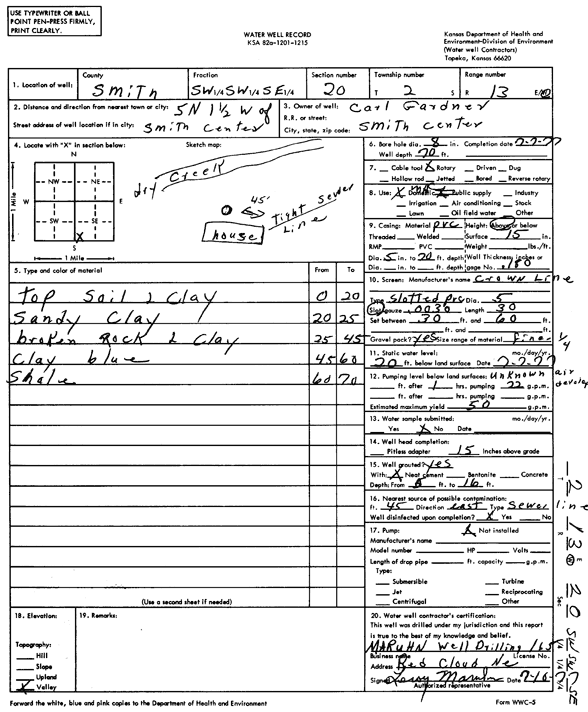 USE TYPEWRITER OR BALL
POINT PEN-PRESS FIRMLY,
PRINT CLEARLY.
WATER WELL RECORD
KSA 82a-1201-1215
Kansas Department of Health and
Environment-Division of Environment
(Water well Contractors)
Topeka, Kansas 66620
1. Location of well: County Smith Fraction SW 1/4 SW 1/4 SE 1/4 Section number 20 Township number T 2 S Range number R 13 E/W
2. Distance and direction from nearest town or city: 5N 1 1/2 W of
Street address of well location if in city: Smith Center
3. Owner of well: Carl Gardner
R.R. or street:
City, state, zip code: Smith Center
4. Locate with "X" in section below:
Sketch map:
N
NW NE
W E
SW SE
X
S
1 Mile
1 Mile
dry Creek
45'
Tight Sewer
Line
house
6. Bore hole dia. 8 in. Completion date 7-2-77
Well depth 70 ft.
7. Cable tool X Rotary Driven Dug
Hollow rod Jetted Bored Reverse rotary
8. Use: Domestic Public supply Industry
Irrigation Air conditioning Stock
Lawn Oil field water Other
9. Casing: Material PVC Height: Above or below
Threaded Welded Surface 15 in.
RMP PVC Weight lbs./ft.
Dia. 5 in. to 20 ft. depth Wall Thickness: inches or
Dia. in. to ft. depth gage No. .180
5. Type and color of material From To
top Soil & Clay 0 20
Sandy Clay 20 25
broken Rock & Clay 25 45
Clay blue 45 60
Shale 60 70
10. Screen: Manufacturer's name Crown Line
Type Slotted pvc Dia. 5
Slot/gauze .0030 Length 30
Set between 30 ft. and 60 ft.
ft. and ft.
Gravel pack? yes Size range of material fines 1/4
11. Static water level: mo./day/yr.
20 ft. below land surface Date 7-2-77
12. Pumping level below land surfaces: unknown
air
ft. after 1 hrs. pumping 22 g.p.m.
ft. after hrs. pumping g.p.m.
Estimated maximum yield 50 g.p.m.
13. Water sample submitted: mo./day/yr.
Yes X No Date
14. Well head completion:
Pitless adapter 15 Inches above grade
15. Well grouted? yes
With: X Neat cement Bentonite Concrete
Depth: From ft. to 16 ft.
16. Nearest source of possible contamination:
ft. 45 Direction east Type Sewer line
Well disinfected upon completion? X Yes No
17. Pump: X Not installed
Manufacturer's name
Model number HP Volts
Length of drop pipe ft. capacity g.p.m.
Type:
Submersible Turbine
Jet Reciprocating
Centrifugal Other
(Use a second sheet if needed)
18. Elevation:
19. Remarks:
Topography:
Hill
Slope
Upland
X Valley
20. Water well contractor's certification:
This well was drilled under my jurisdiction and this report
is true to the best of my knowledge and belief.
MARUHN Well Drilling 165
Business name License No.
Address Red Cloud Ne
Signed Leroy Maruhn Date
Authorized representative
Forward the white, blue and pink copies to the Department of Health and Environment
Form WWC-5
2 13 W
Sec
20 SW SW SE
1/4 1/4 1/4